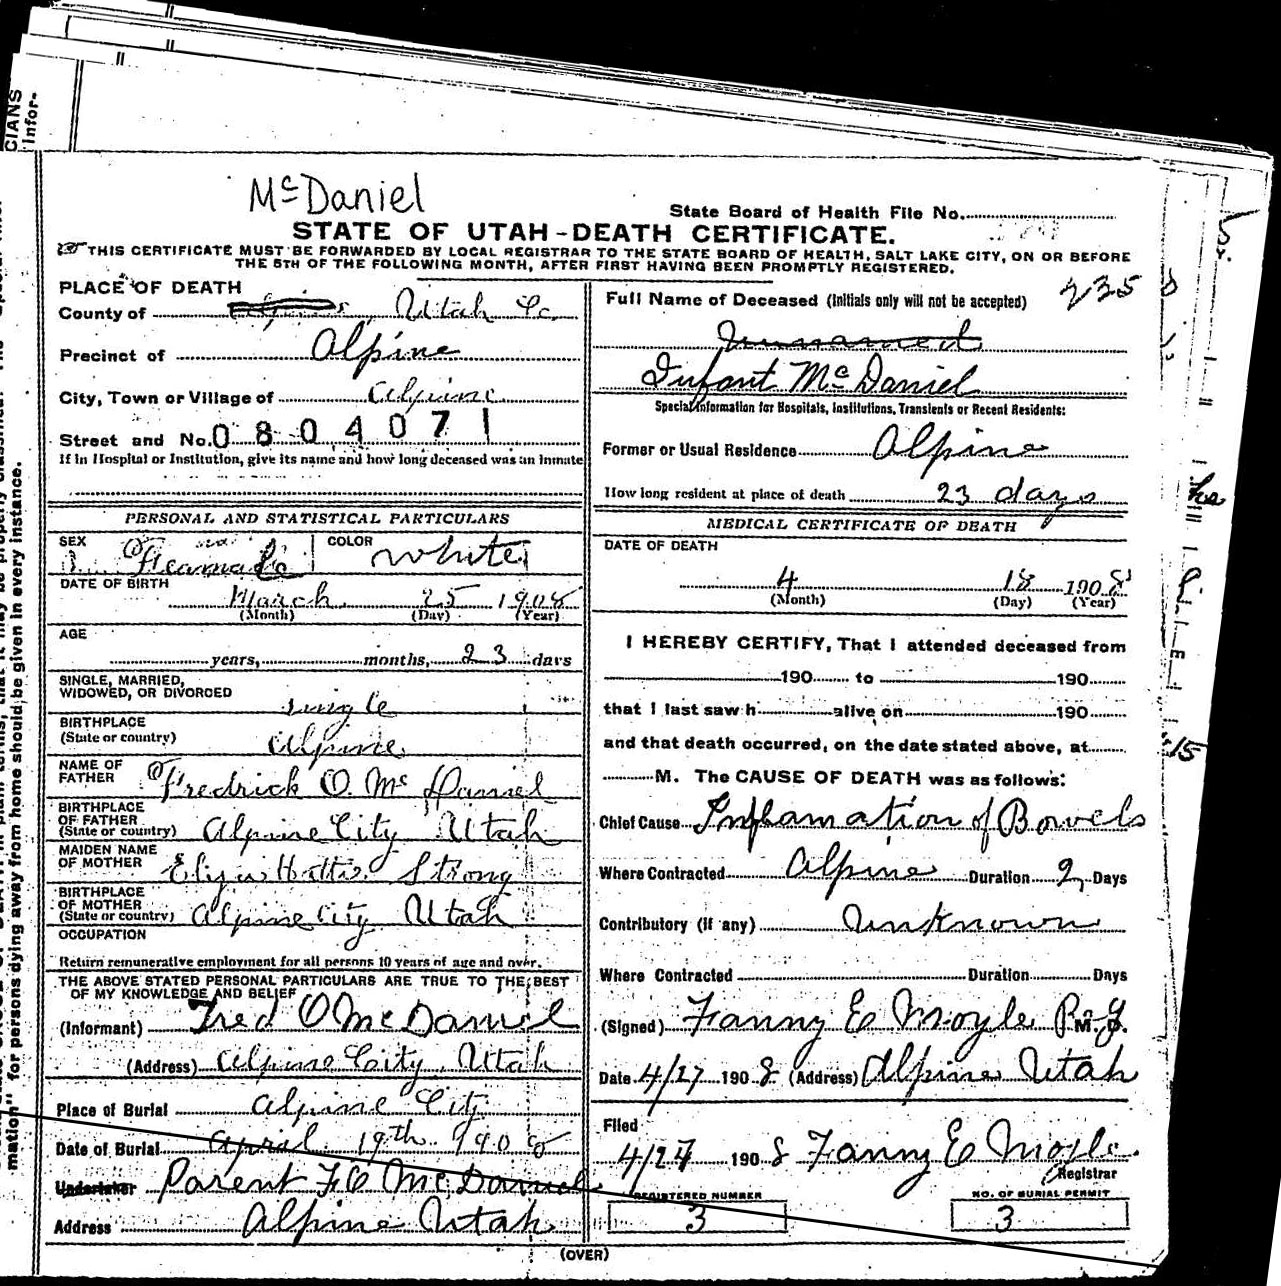 CIANS
infor-
McDaniel
State Board of Health File No.
STATE OF UTAH-DEATH CERTIFICATE.
THIS CERTIFICATE MUST BE FORWARDED BY LOCAL REGISTRAR TO THE STATE BOARD OF HEALTH, SALT LAKE CITY, ON OR BEFORE
THE 5TH OF THE FOLLOWING MONTH, AFTER FIRST HAVING BEEN PROMPTLY REGISTERED.
235
PLACE OF DEATH
County of Utah Co.
Precinct of Alpine
City, Town or Village of Alpine
Street and No. 0804071
If in Hospital or Institution, give its name and how long deceased was an inmate
Full Name of Deceased (Initials only will not be accepted)
Unnamed
Infant McDaniel
Special Information for Hospitals, Institutions, Transients or Recent Residents:
Former or Usual Residence Alpine
How long resident at place of death 23 days
PERSONAL AND STATISTICAL PARTICULARS
SEX Feamale COLOR white
DATE OF BIRTH
March 25 1908
(Month) (Day) (Year)
AGE
years, months, 23 days
SINGLE, MARRIED,
WIDOWED, OR DIVORCED single
BIRTHPLACE
(State or country) Alpine
NAME OF
FATHER Fredrick O. McDaniel
BIRTHPLACE
OF FATHER
(State or country) Alpine City Utah
MAIDEN NAME
OF MOTHER Strong
BIRTHPLACE
OF MOTHER
(State or country) Alpine City Utah
OCCUPATION
Return remunerative employment for all persons 10 years of age and over.
THE ABOVE STATED PERSONAL PARTICULARS ARE TRUE TO THE BEST
OF MY KNOWLEDGE AND BELIEF
(Informant) Fred O McDaniel
(Address) Alpine City, Utah
Place of Burial Alpine City
Date of Burial April 19th 1908
Undertaker Parent F O McDaniel
Address Alpine Utah
MEDICAL CERTIFICATE OF DEATH
DATE OF DEATH
4 18 1908
(Month) (Day) (Year)
I HEREBY CERTIFY, That I attended deceased from
190 to 190
that I last saw h alive on 190
and that death occurred, on the date stated above, at
M. The CAUSE OF DEATH was as follows:
Chief Cause Inflamation of Bowels
Where Contracted Alpine Duration 2 Days
Contributory (if any) Unknown
Where Contracted Duration Days
(Signed) Fanny E Moyle M.D.
Date 4/27 1908 (Address) Alpine Utah
Filed
4/27 1908 Fanny E Moyle
Registrar
REGISTERED NUMBER
3
NO. OF BURIAL PERMIT
3
(OVER)
mation" for persons dying away from home should be given in every instance.
15